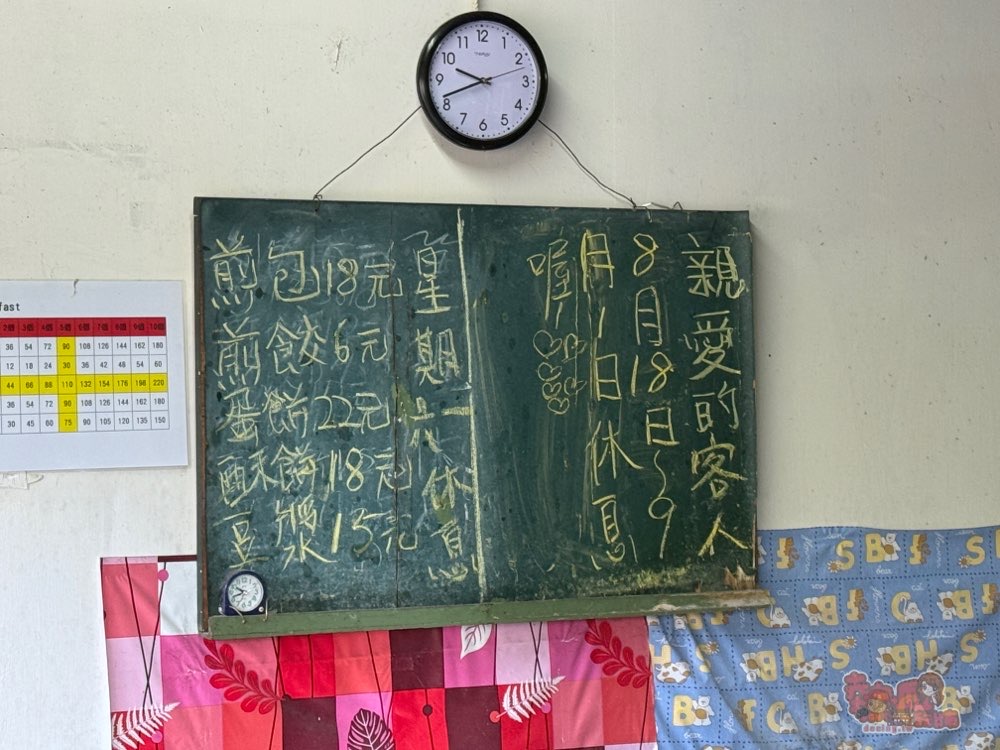 親愛的客人
8月18日~9
月1日休息
喔!
星期一休息
煎包18元
煎餃6元
蛋餅22元
酥餅18元
豆漿15元
fast
2個 3個 4個 5個 6個 7個 8個 9個 10個
36 54 72 90 108 126 144 162 180
12 18 24 30 36 42 48 54 60
44 66 88 110 132 154 176 198 220
36 54 72 90 108 126 144 162 180
30 45 60 75 90 105 120 135 150
12 1 2 3 4 5 6 7 8 9 10 11